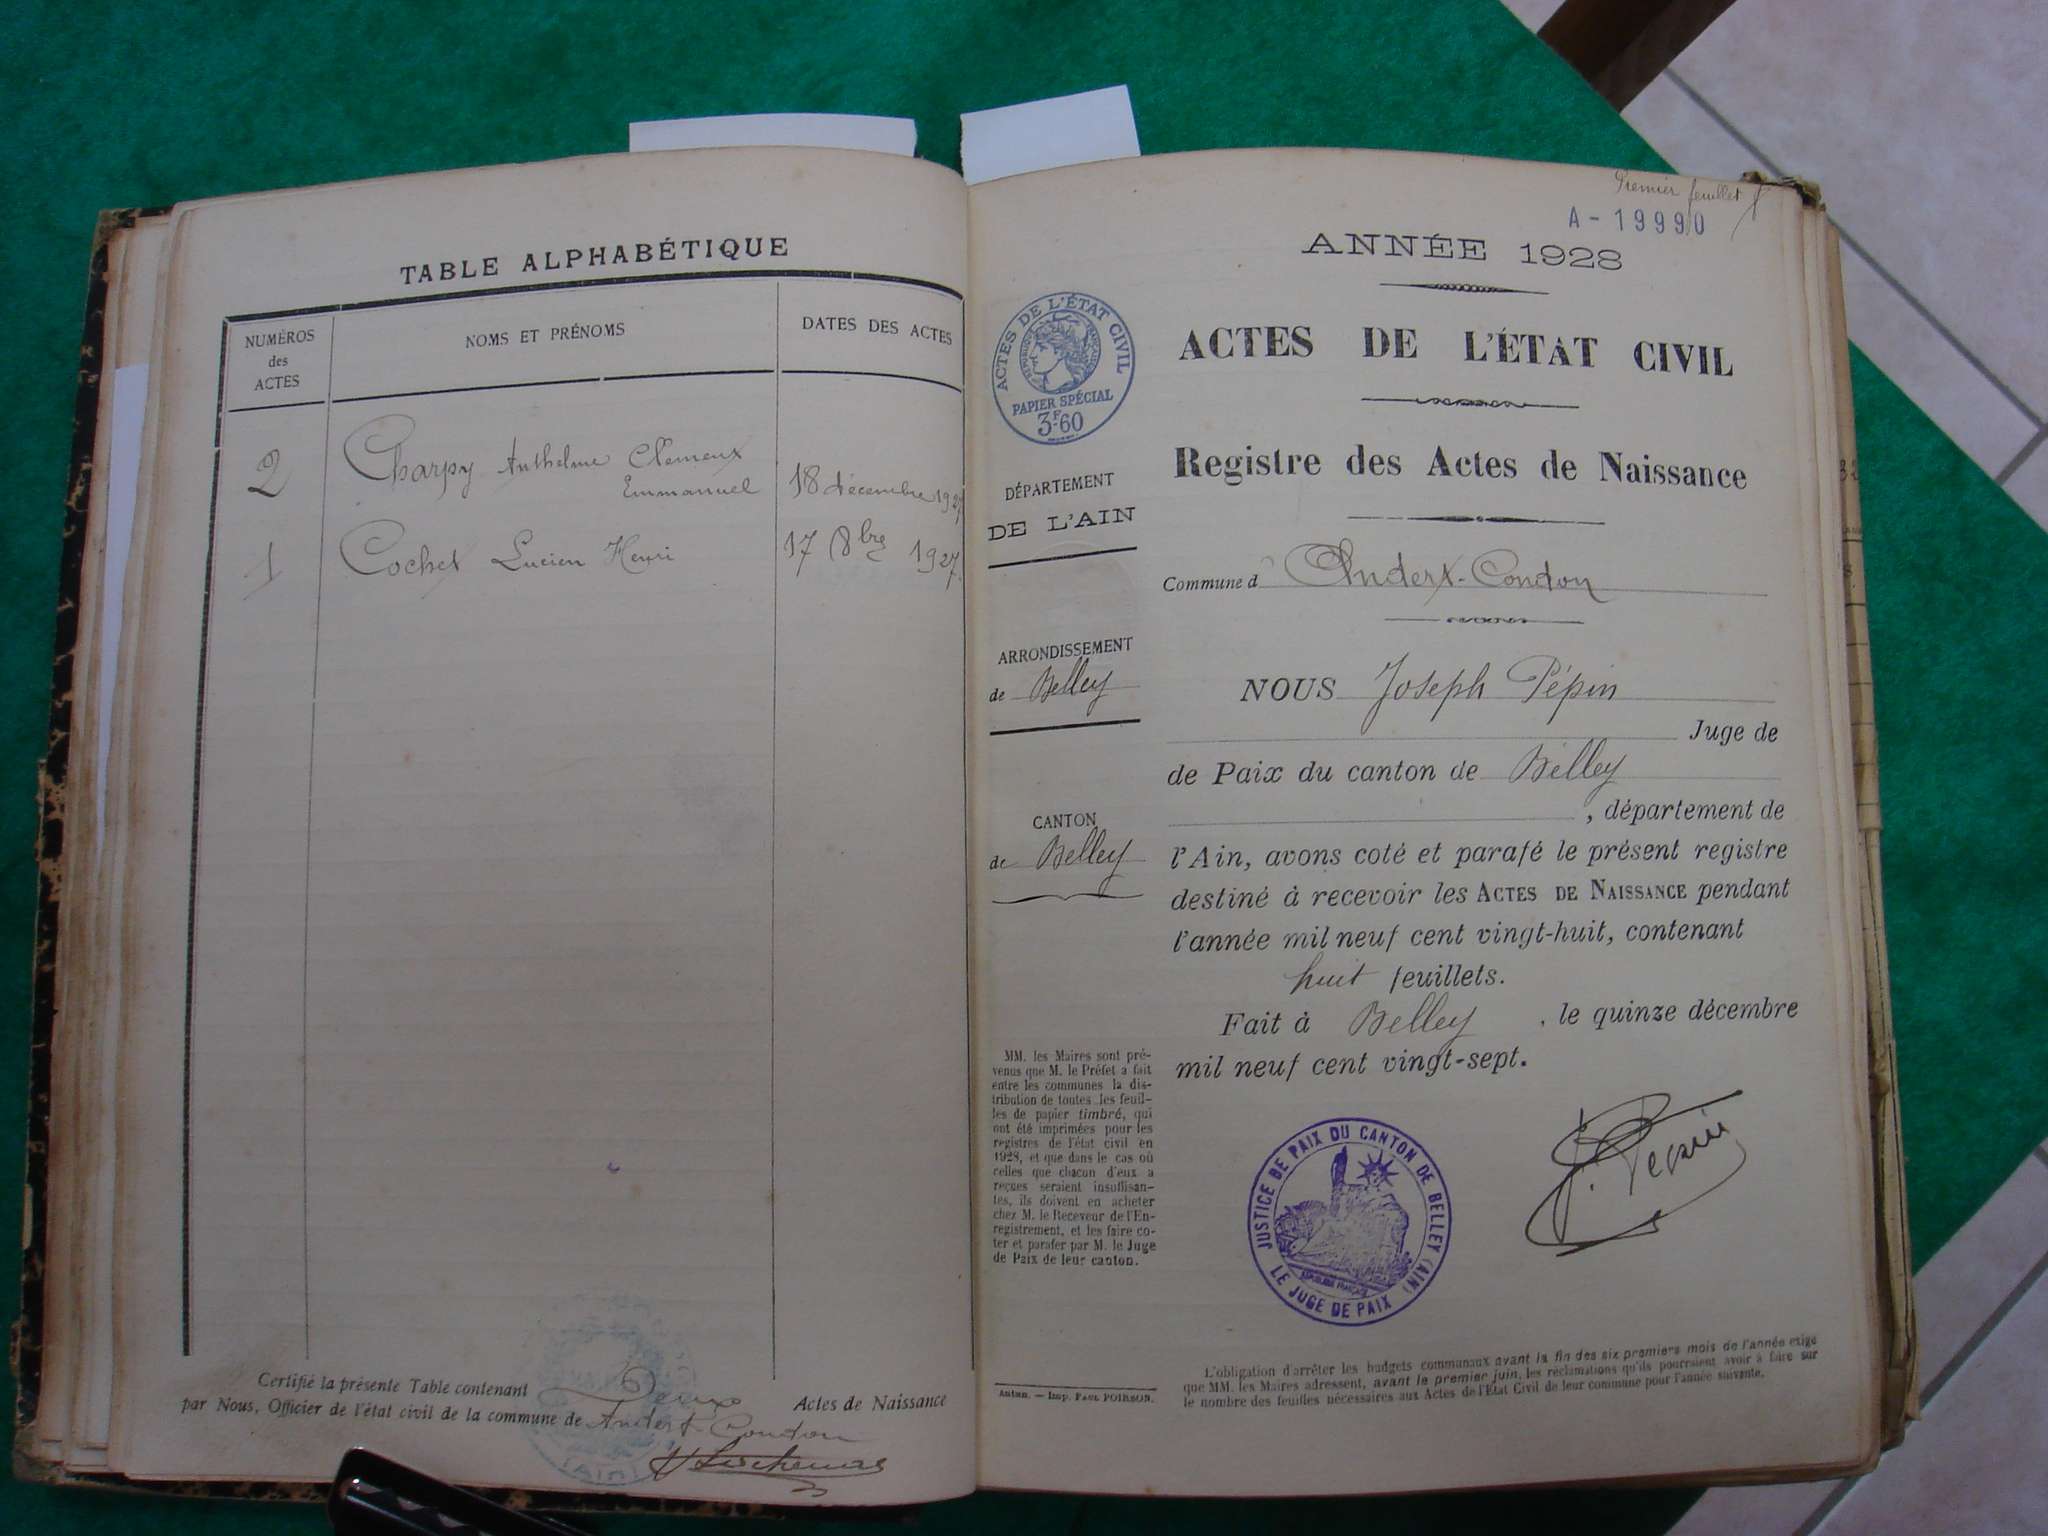 TABLE ALPHABÉTIQUE
NUMÉROS
des
ACTES
NOMS ET PRÉNOMS
DATES DES ACTES
2 Charpy Anthelme Clément
Emmanuel 18 décembre 1927
1 Cochet Lucien Henri 17 8bre 1927.
Certifié la présente Table contenant Deux Actes de Naissance
par Nous, Officier de l'état civil de la commune de Andert Condon
(AIN)
Premier feuillet
A - 19990
ANNÉE 1928
ACTES DE L'ÉTAT CIVIL
RÉPUBLIQUE FRANÇAISE
PAPIER SPÉCIAL
3F.60
ACTES DE L'ÉTAT CIVIL
Registre des Actes de Naissance
DÉPARTEMENT
DE L'AIN
ARRONDISSEMENT
de Belley
CANTON
de Belley
MM. les Maires sont pré-
venus que M. le Préfet a fait
entre les communes la dis-
tribution de toutes les feuil-
les de papier timbré, qui
ont été imprimées pour les
registres de l'état civil en
1928, et que dans le cas où
celles que chacun d'eux a
reçues seraient insuffisan-
tes, ils doivent en acheter
chez M. le Receveur de l'En-
registrement, et les faire co-
ter et parafer par M. le Juge
de Paix de leur canton.
Autun. — Imp. PAUL POIRSON.
Commune d' Andert-Condon
NOUS Joseph Pépin
Juge de
de Paix du canton de Belley
, département de
l'Ain, avons coté et parafé le présent registre
destiné à recevoir les ACTES DE NAISSANCE pendant
l'année mil neuf cent vingt-huit, contenant
huit feuillets.
Fait à Belley, le quinze décembre
mil neuf cent vingt-sept.
JUSTICE DE PAIX DU CANTON DE BELLEY (AIN)
RÉPUBLIQUE FRANÇAISE
LE JUGE DE PAIX
J. Pepin
L'obligation d'arrêter les budgets communaux avant la fin des six premiers mois de l'année exige
que MM. les Maires adressent, avant le premier juin, les réclamations qu'ils pourraient avoir à faire sur
le nombre des feuilles nécessaires aux Actes de l'État Civil de leur commune pour l'année suivante.